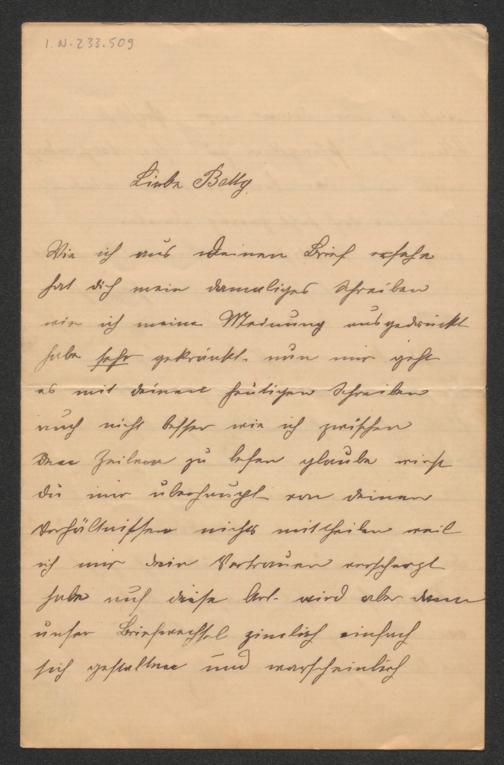 I.N. 233.509
Liebe Betty
Wie ich aus Deinen Brief ersehe
hat dich mein damaliges Schreiben
wie ich meine Meinung ausgedrückt
habe sehr gekränkt. nun mir geht
es mit deinen heutigen Schreiben
auch nicht besser wie ich zwischen
den Zeilen zu lesen glaube wirst
du mir überhaupt von deinen
Verhältnissen nichts mittheilen weil
ich mir dein Vertrauen verscherzt
habe auf diese Art. wird aber dann
unser Briefwechsel zimlich einfach
sich gestalten und warscheinlich